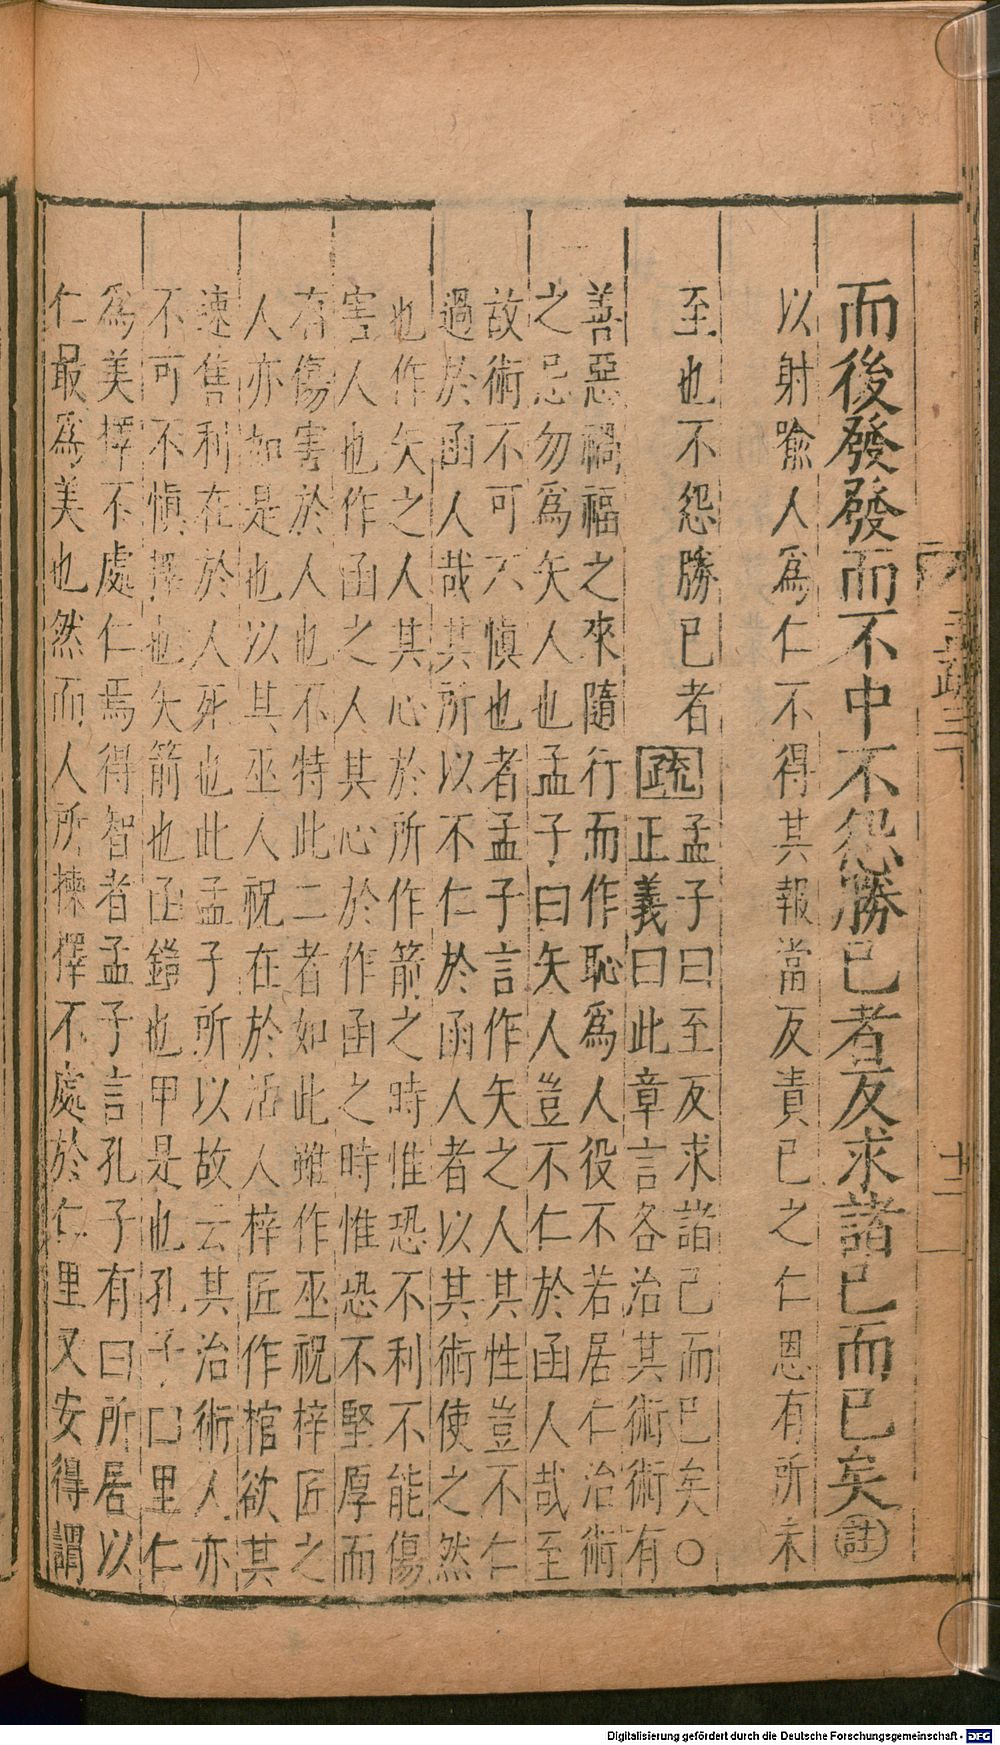 而後發發而不中不怨勝己者反求諸己而已矣註
以射喩人爲仁不得其報當反責已之仁恩有所未
至也不怨勝已者
疏
孟子曰至反求諸己而巳矣○
正義曰此章言各治其術術有
善惡禍福之來隨行而作恥爲人役不若居仁治術
之忌勿爲矢人也孟子曰矢人豈不仁於函人哉至
故術不可不愼也者孟子言作矢之人其性豈不仁
過於函人哉其所以不仁於函人者以其術使之然
也作矢之人其心於所作箭之時惟恐不利不能傷
害人也作函之人其心於作函之時惟恐不堅厚而
有傷害於人也不特此二者如此雖作巫祝梓匠之
人亦如是也以其巫人祝在於活人梓匠作棺欲其
速售利在於人死也此孟子所以故云其治術人亦
不可不愼擇也矢箭也函鎧也甲是也孔子曰里仁
爲美擇不處仁焉得智者孟子言孔子有曰所居以
仁最爲美也然而人所揀擇不處於仁里又安得謂
孟疏三下
十二
Digitalisierung gefördert durch die Deutsche Forschungsgemeinschaft - DFG